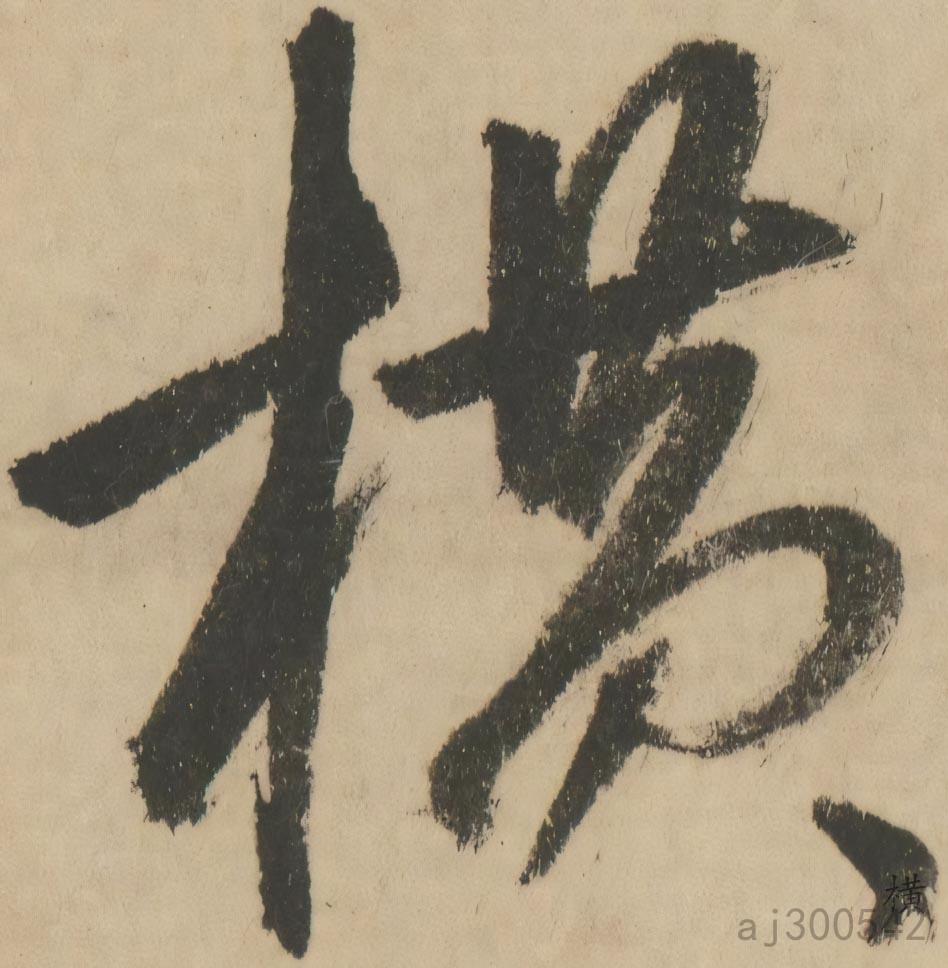 横
横
aj300542